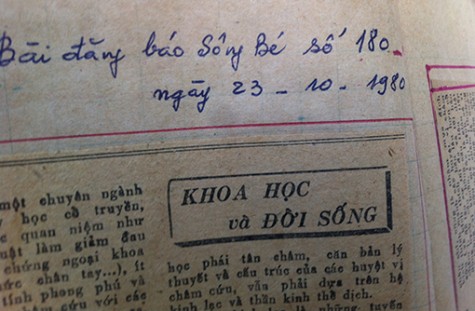 Bài đăng báo Sông Bé số 180
ngày 23 - 10 - 1980
một chuyên ngành
y học cổ truyền,
c quan niệm như
uật làm giảm đau
chứng ngoại khoa
ức chân tay...), ít
tính phong phú và
cứu với các
KHOA HỌC
và ĐỜI SỐNG
học phái tân châm, căn bản lý
thuyết và cấu trúc của các huyệt vị
châm cứu, vẫn phải dựa trên hệ
kinh lạc và thần kinh thể dịch.